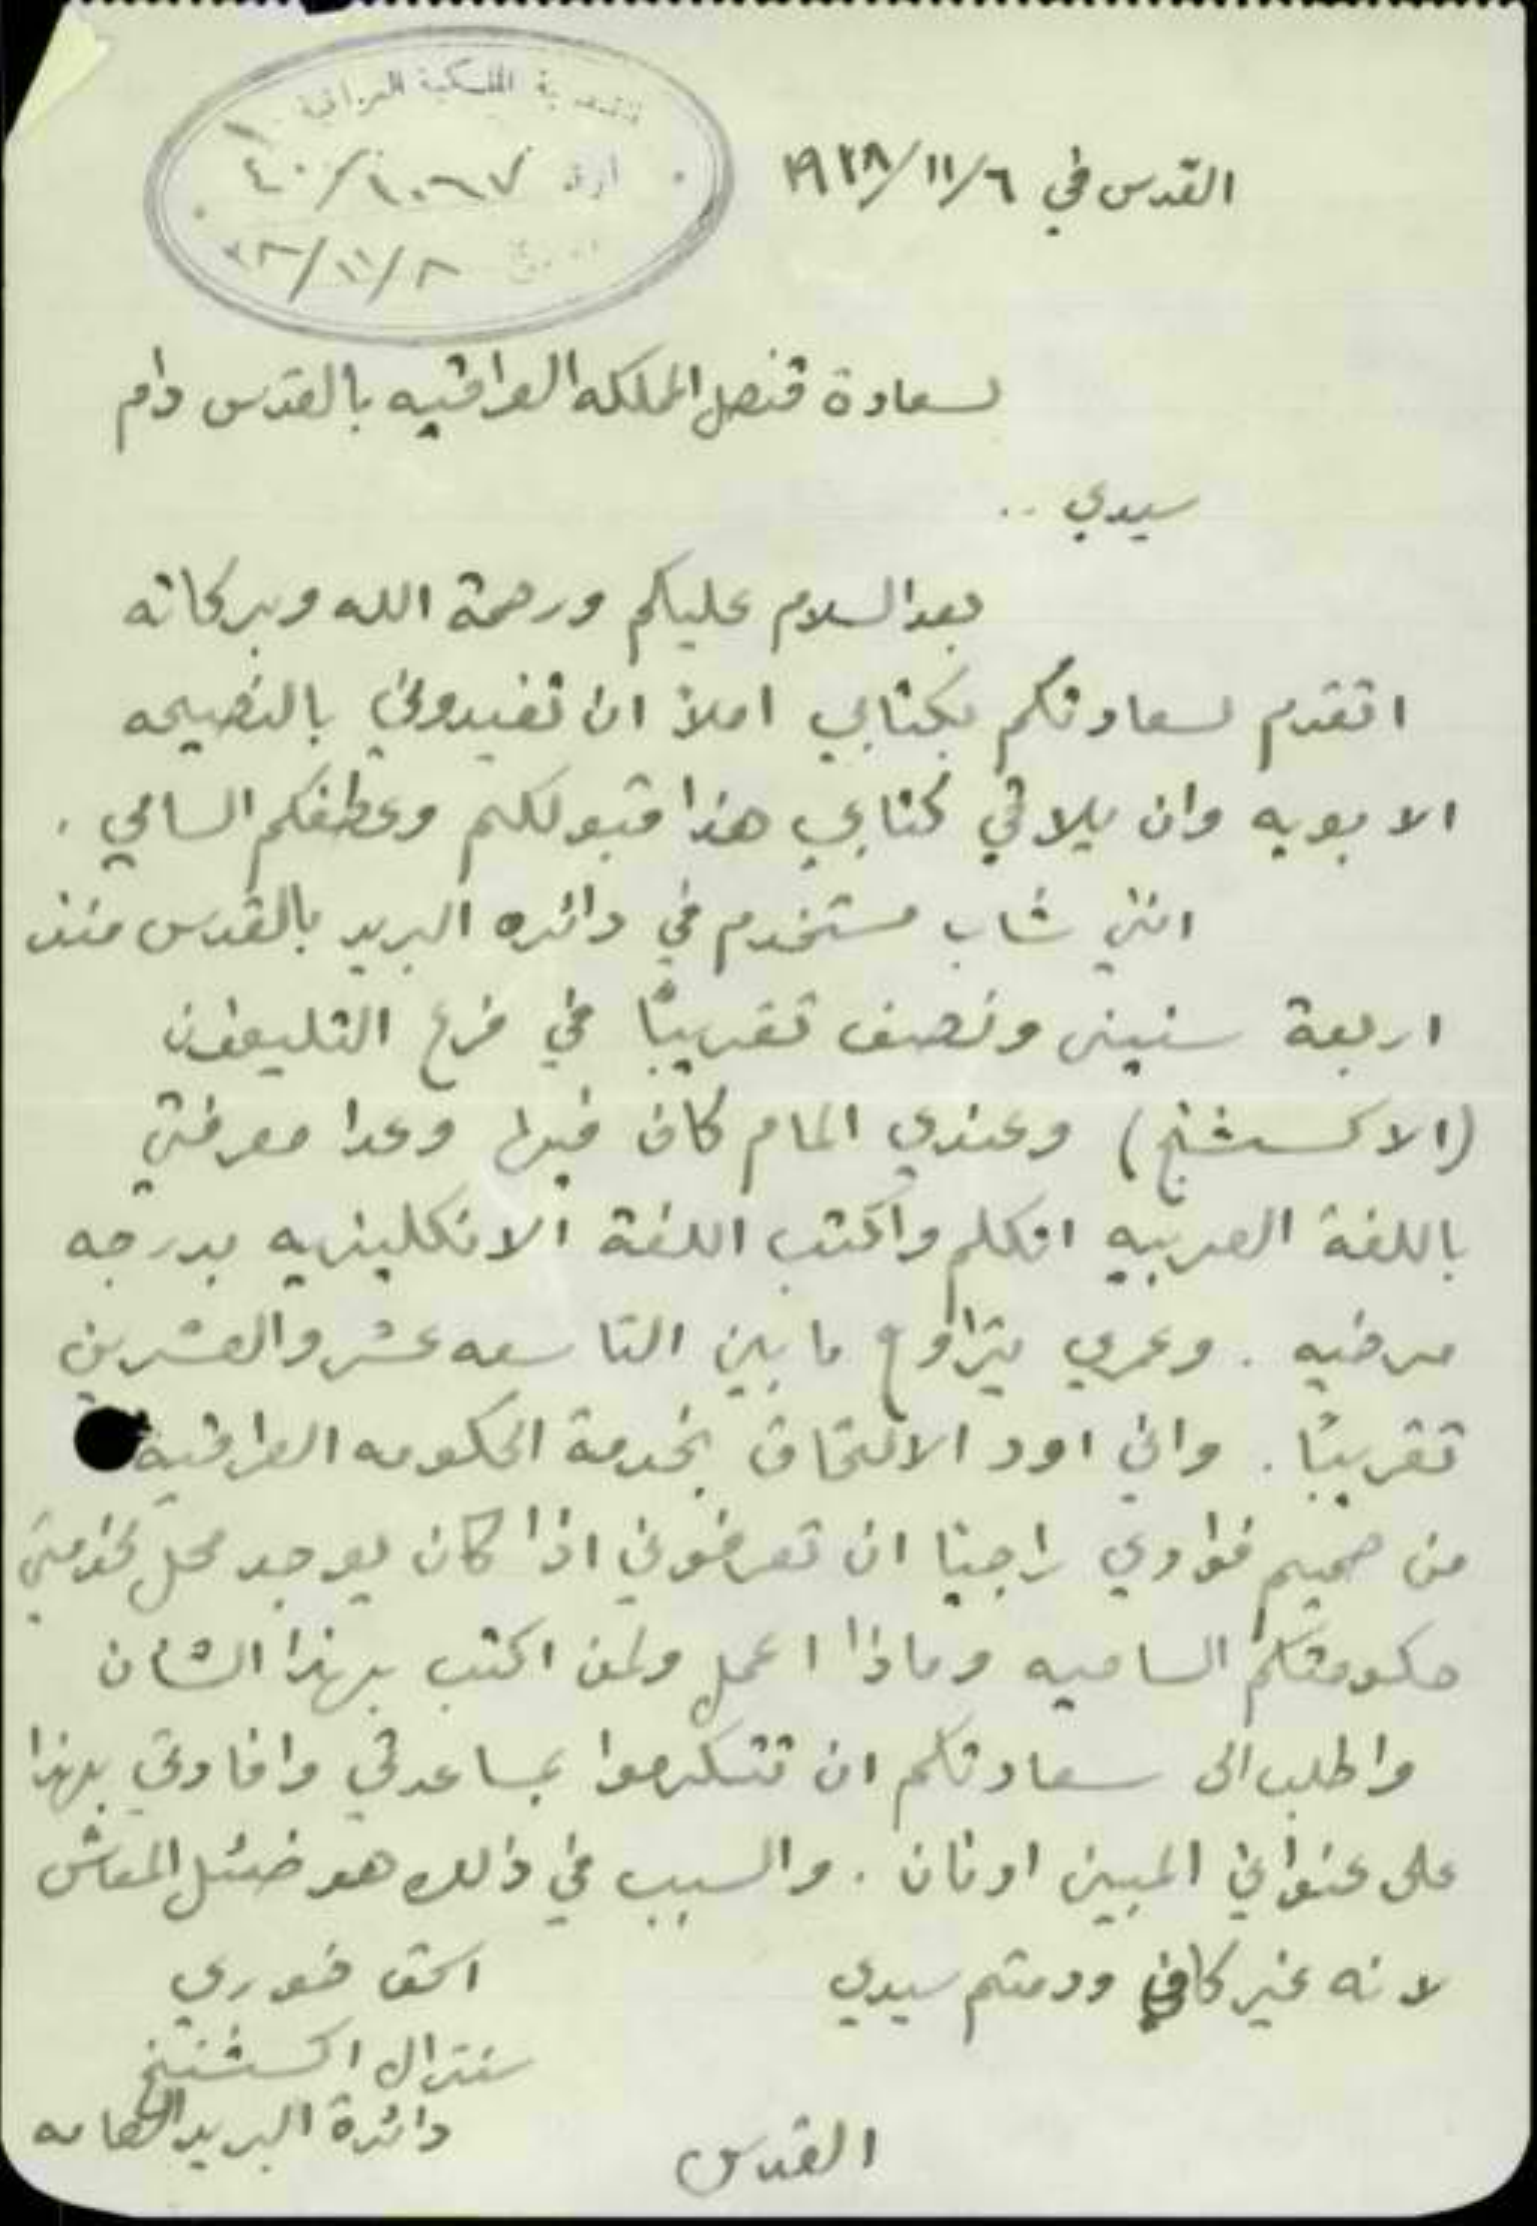 القنصلية الملكية العراقية
القدس في ٦/١١/١٩٣٨
٨/١١/٣٨
لسعادة قنصل المملكه العراقيه بالقدس دام
سيدي ..
بعد السلام عليكم ورحمة الله وبركاته
اتقدم لسعادتكم بكتابي املاً ان تفيدوني بالنصيحه
الابويه وان يلاقي كتابي هذا قبولكم وعطفكم السامي .
انني شاب مستخدم في دائره البريد بالقدس منذ
اربعة سنين ونصف تقريبًا في فرع التليفون
(الاكسشنج) وعندي المام كاف فيها وعدا معرفتي
باللغة العربيه اتكلم واكتب اللغة الانكليزيه بدرجه
مرضيه . وعمري يتراوح ما بين التاسعه عشر والعشرين
تقريبًا . واني اود الالتحاق بخدمة الحكومه العراقية
من صميم فؤادي راجيًا ان تعرفوني اذا كان يوجد محل لخدمتي
حكومتكم الساميه وماذا اعمل ولمن اكتب بهذا الشان
واطلب الى سعادتكم ان تتكرموا بمساعدتي وافادتي بهذا
على عنواني المبين ادناه . والسبب في ذلك هو ضئل المعاش
لانه غير كافي ودمتم سيدي
اسحق خوري
سنترال اكسشنج
دائرة البريد العامه
القدس